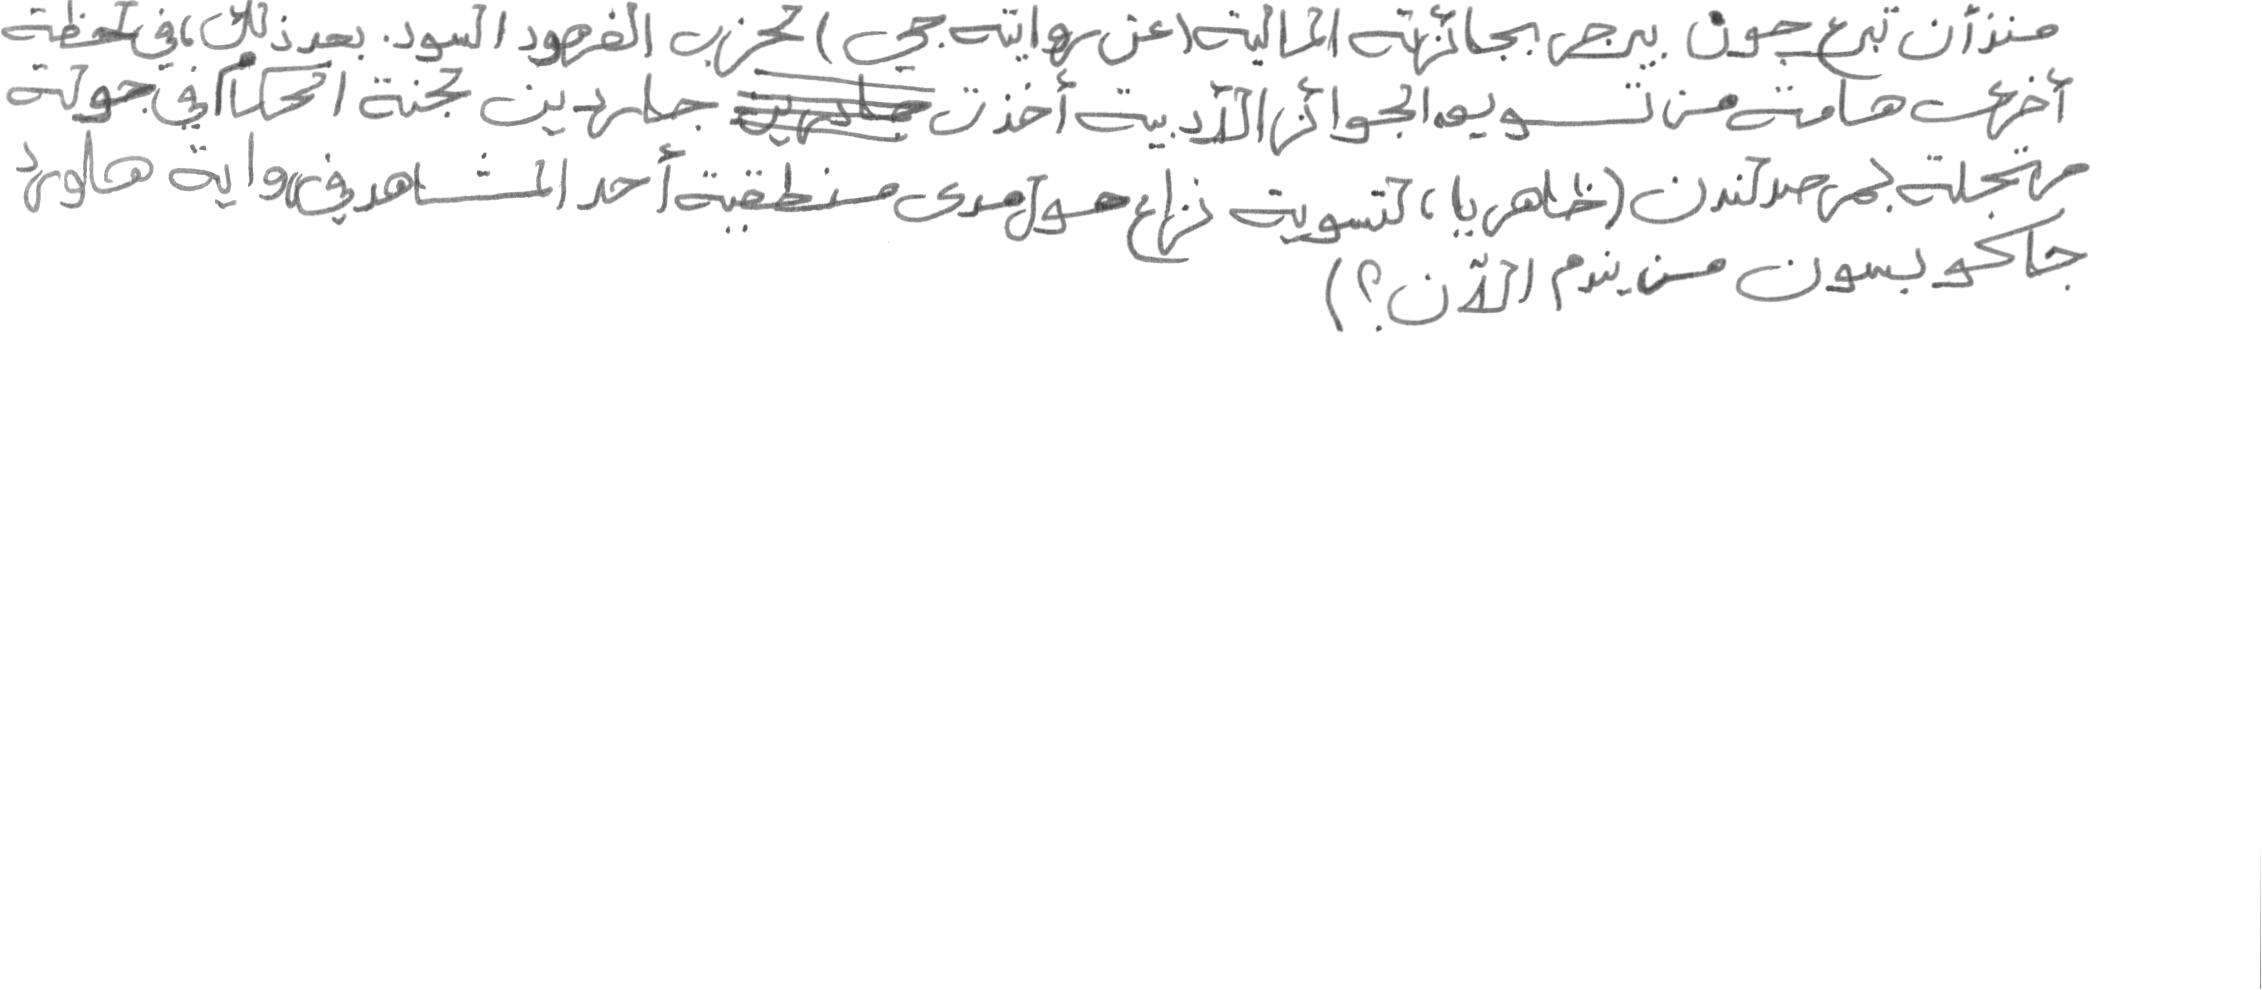 منذ أن تبرع جون بيرجر بجائزته المالية (عن روايته جي) لحزب الفهود السود. بعد ذلك، في لحظة
أخرى هامة من تسويق الجوائز الأدبية أخذت جاردين لجنة الحكام في جولة
مرتجلة بمرصد لندن (ظاهريا، لتسوية نزاع حول مدى منطقية أحد المشاهد في رواية هاورد
جاكوبسون من يندم الآن؟)